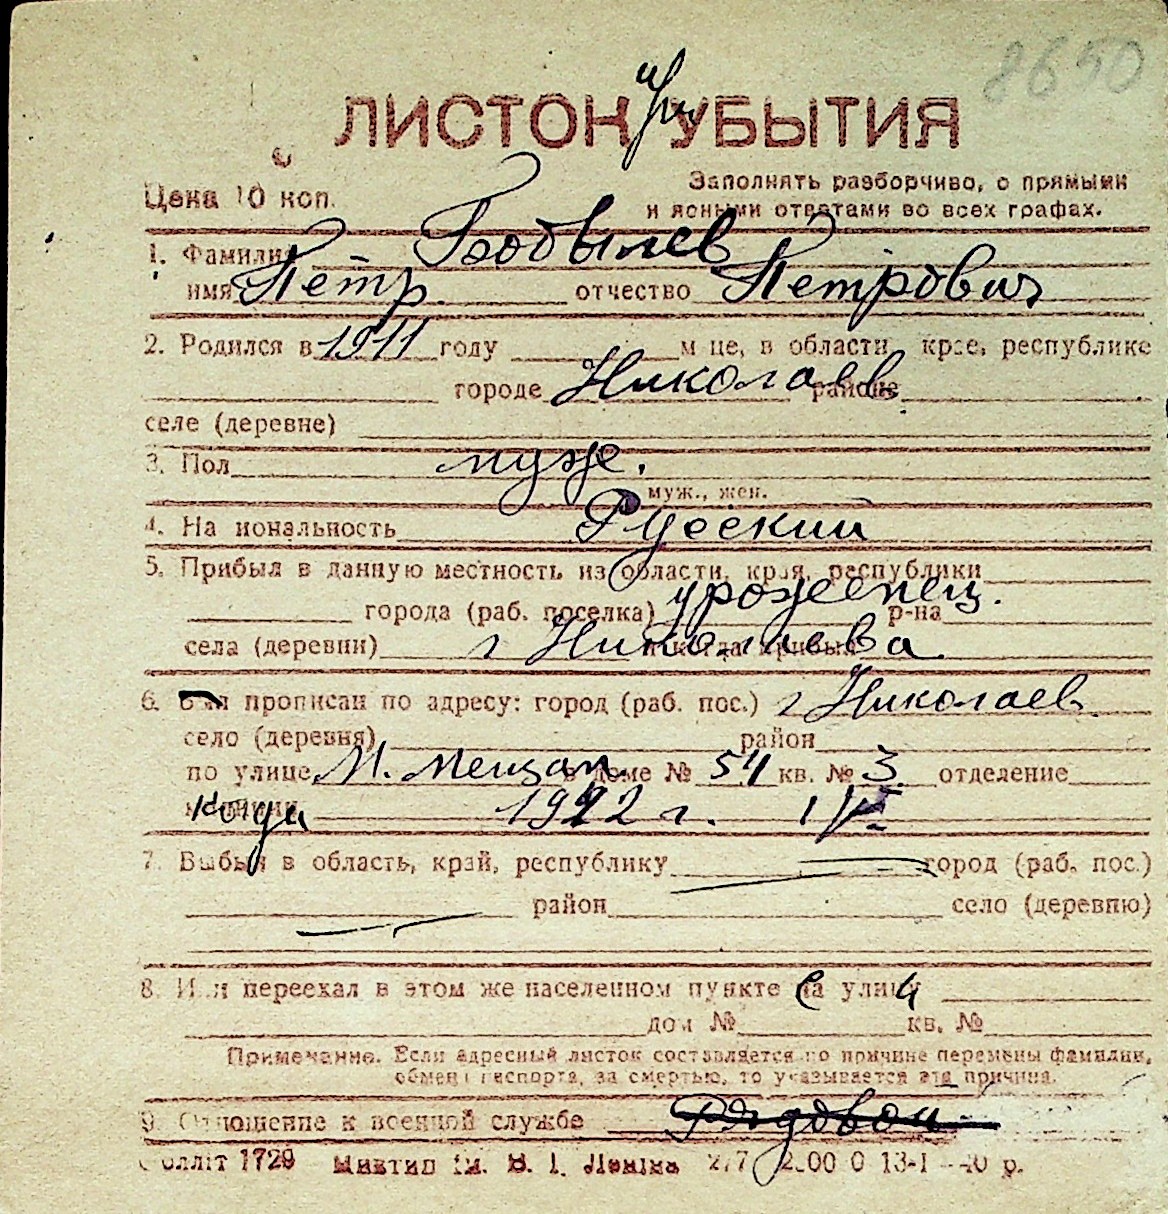 8650
при
ЛИСТОК УБЫТИЯ
Цена 10 коп.
Заполнять разборчиво, с прямыми
и ясными ответами во всех графах.
1. Фамилия Бобылев
имя Петр отчество Петрович
2. Родился в 1911 году м-це, в области, крае, республике
городе Николаев районе
селе (деревне)
3. Пол муж.
муж., жен.
4. Национальность Русский
5. Прибыл в данную местность из области, края, республики
города (раб. поселка) уроженец. р-на
села (деревни) г Николаева и когда прибыл
6. Был прописан по адресу: город (раб. пос.) г Николаев
село (деревня) район
по улице М. Мещан. в доме № 54 кв. № 3 отделение
милиции когда 1922 г.
7. Выбыл в область, край, республику город (раб. пос.)
район село (деревню)
8. Или переехал в этом же населенном пункте на улицу
дом № кв. №
Примечание. Если адресный листок составляется по причине перемены фамилии,
обмена паспорта, за смертью, то указывается эта причина.
9. Отношение к военной службе Рядовой
1729 им. В. І. Леніна